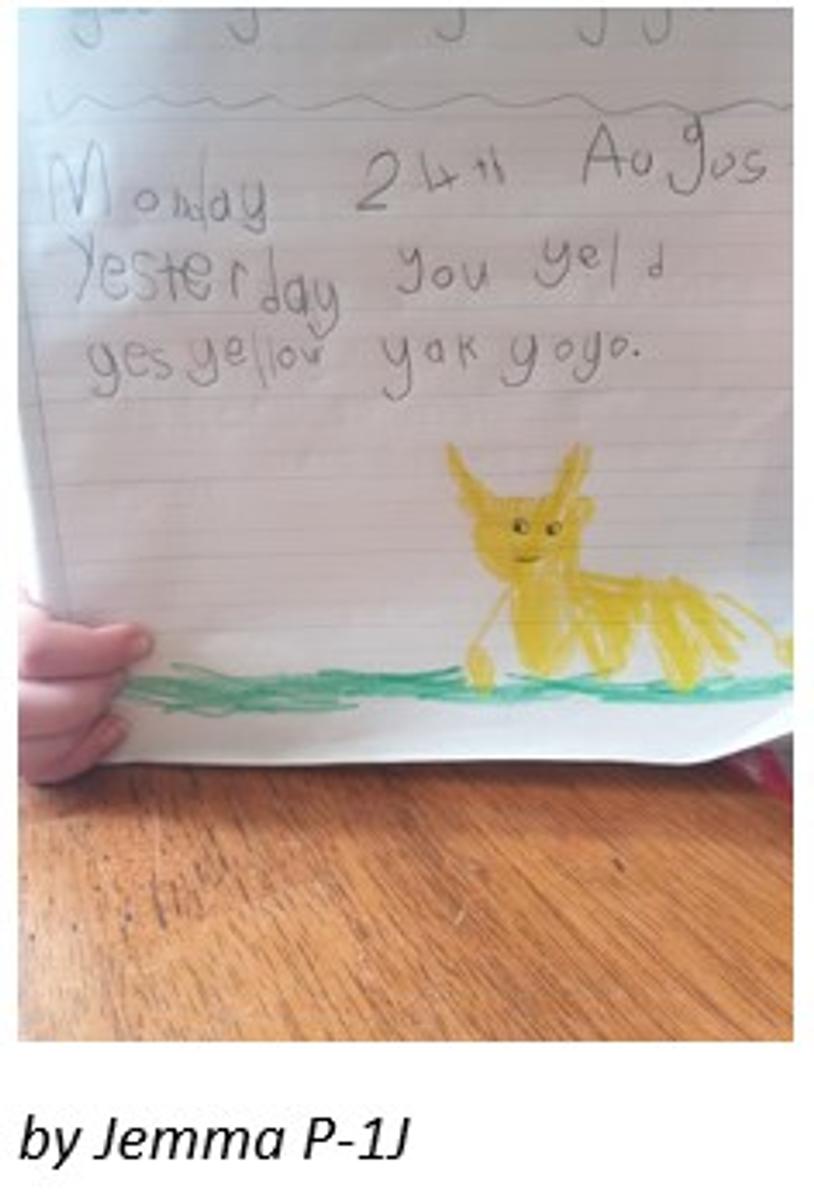 Monday 24th Augus
Yesterday you yeld
yes yellow yak yoyo.
by Jemma P-1J